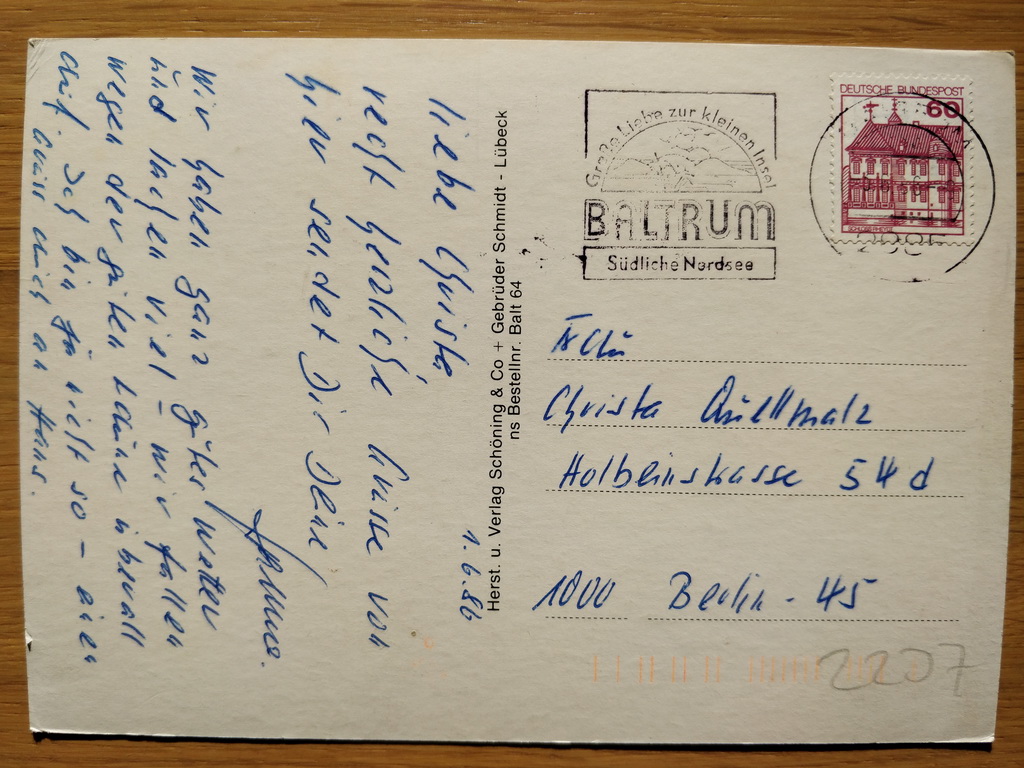 Große Liebe zur kleinen Insel
BALTRUM
Südliche Nordsee
DEUTSCHE BUNDESPOST
60
2985
Frau
Christa Quellmalz
Holbeinstrasse 54 d
1000 Berlin - 45
2207
Herst. u. Verlag Schöning & Co + Gebrüder Schmidt - Lübeck
ns Bestellnr. Balt 64
1.6.86
liebe Christa,
recht herzliche Grüsse von
hier sendet Dir Deine
Wir haben ganz gutes Wetter
und lachen viel - wir fallen
wegen der guten Laune überall
auf. Ich bin ja nicht so - einen
Gruss auch an Hans.